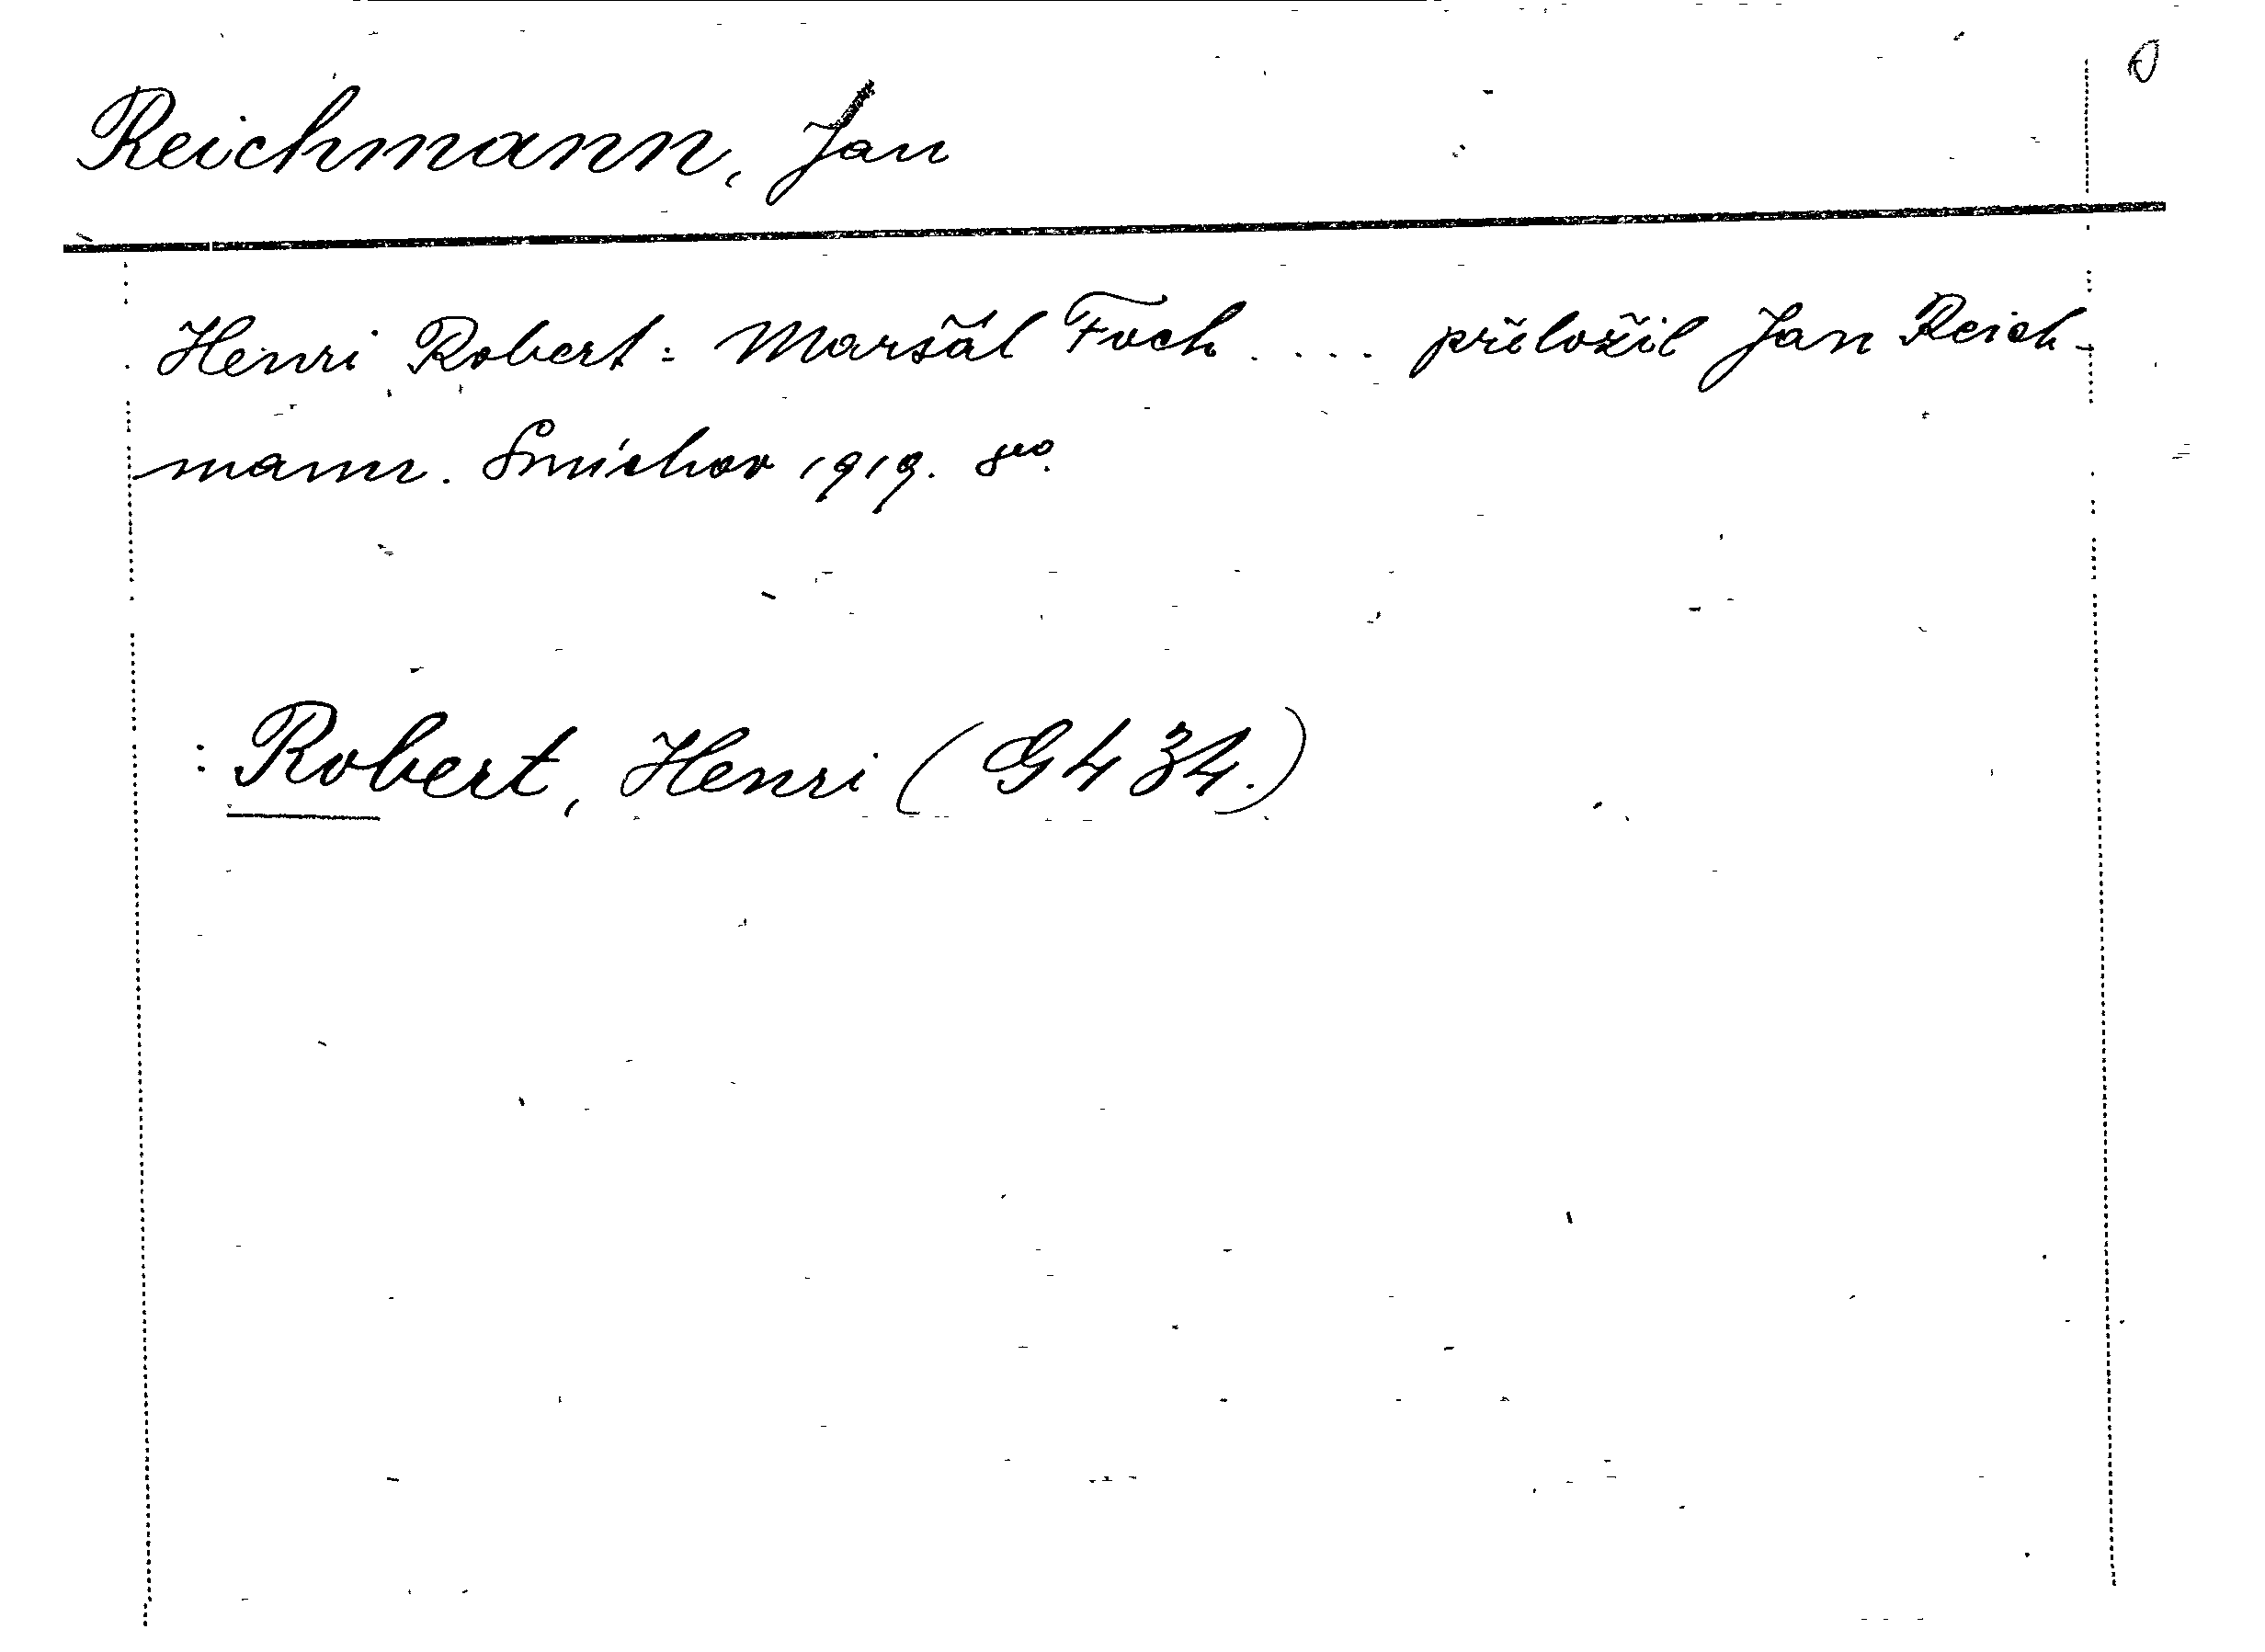 Reichmann, Jan
Henri Robert: Maršál Foch .... přeložil Jan Reich-
mann. Smíchov 1919. 8vo.
: Robert, Henri (G 434.)